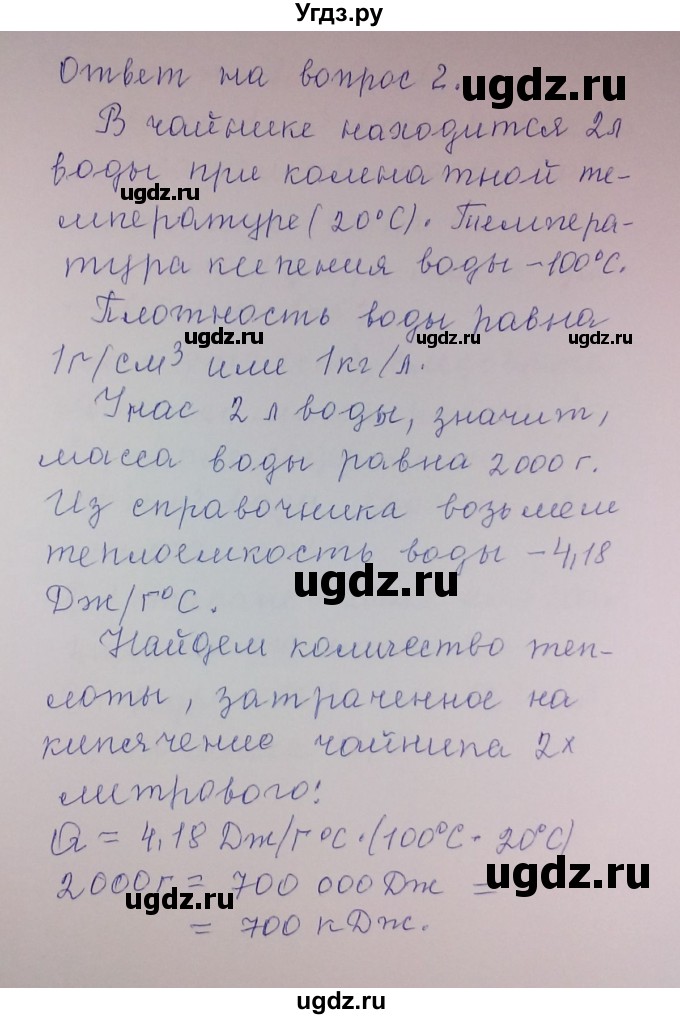 Угдз.ру
Ответ на вопрос 2.
В чайнике находится 2л
воды при комнатной те-
мпературе (20°С). Темпера-
тура кипения воды -100°С.
Плотность воды равна
1г/см³ или 1кг/л.
У нас 2 л воды, значит,
масса воды равна 2000 г.
Из справочника возьмем
теплоемкость воды -4,18
Дж/г°С.
Найдем количество теп-
лоты, затраченное на
кипячение чайника 2х
литрового:
Q = 4,18 Дж/г°С·(100°С - 20°С)
2000г = 700 000 Дж =
= 700 кДж.
ugdz.ru
ugdz.ru
ugdz.ru
ugdz.ru
ugdz.ru
ugdz.ru
ugdz.ru
ugdz.ru
ugdz.ru